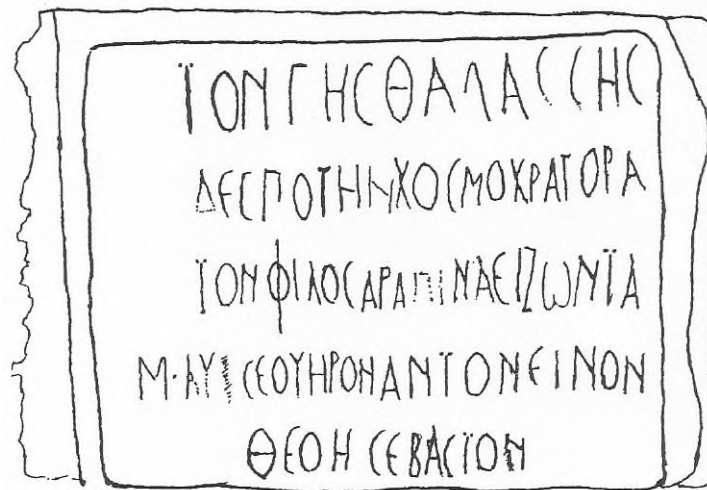 ΤΟΝΓΗϹΘΑΛΑϹϹΗϹ
ΔΕϹΠΟΤΗΝΚΟϹΜΟΚΡΑΤΟΡΑ
ΤΟΝΦΙΛΟϹΑΡΑΠΙΝΑΕΙΖΩΝΤΑ
Μ·ΑΥ ϹΕΟΥΗΡΟΝΑΝΤΟΝΕΙΝΟΝ
ΘΕΟΝ ϹΕΒΑϹΤΟΝ